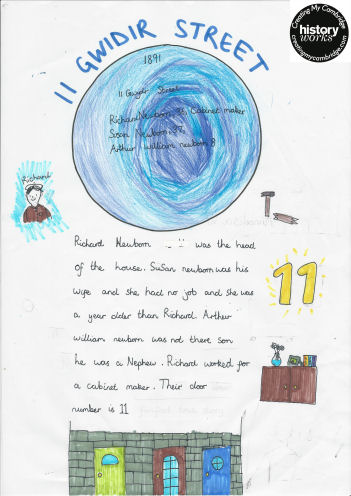 Creating My Cambridge
history
works
creatingmycambridge.com
11 GWIDIR STREET
1891
11 Gwydir Street
Richard Newborn, cabinet maker
Susan Newborn 37,
Arthur william newborn 8
Richard
Richard Newborn was the head
of the house. Susan newborn was his
wife and she had no job and she was
a year older than Richard. Arthur
william newborn was not there son
he was a Nephew. Richard worked for
a cabinet maker. Their door
number is 11
11